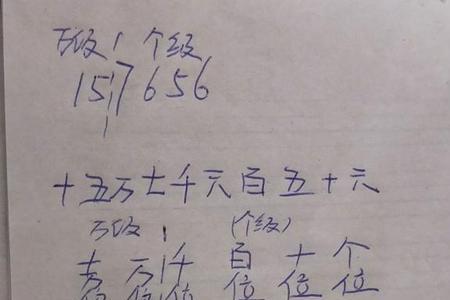 万级 | 个级
15 | 7656
十五万七千六百五十六
万级 | (个级)
十万 | 千百十个
位位 | 位位位位